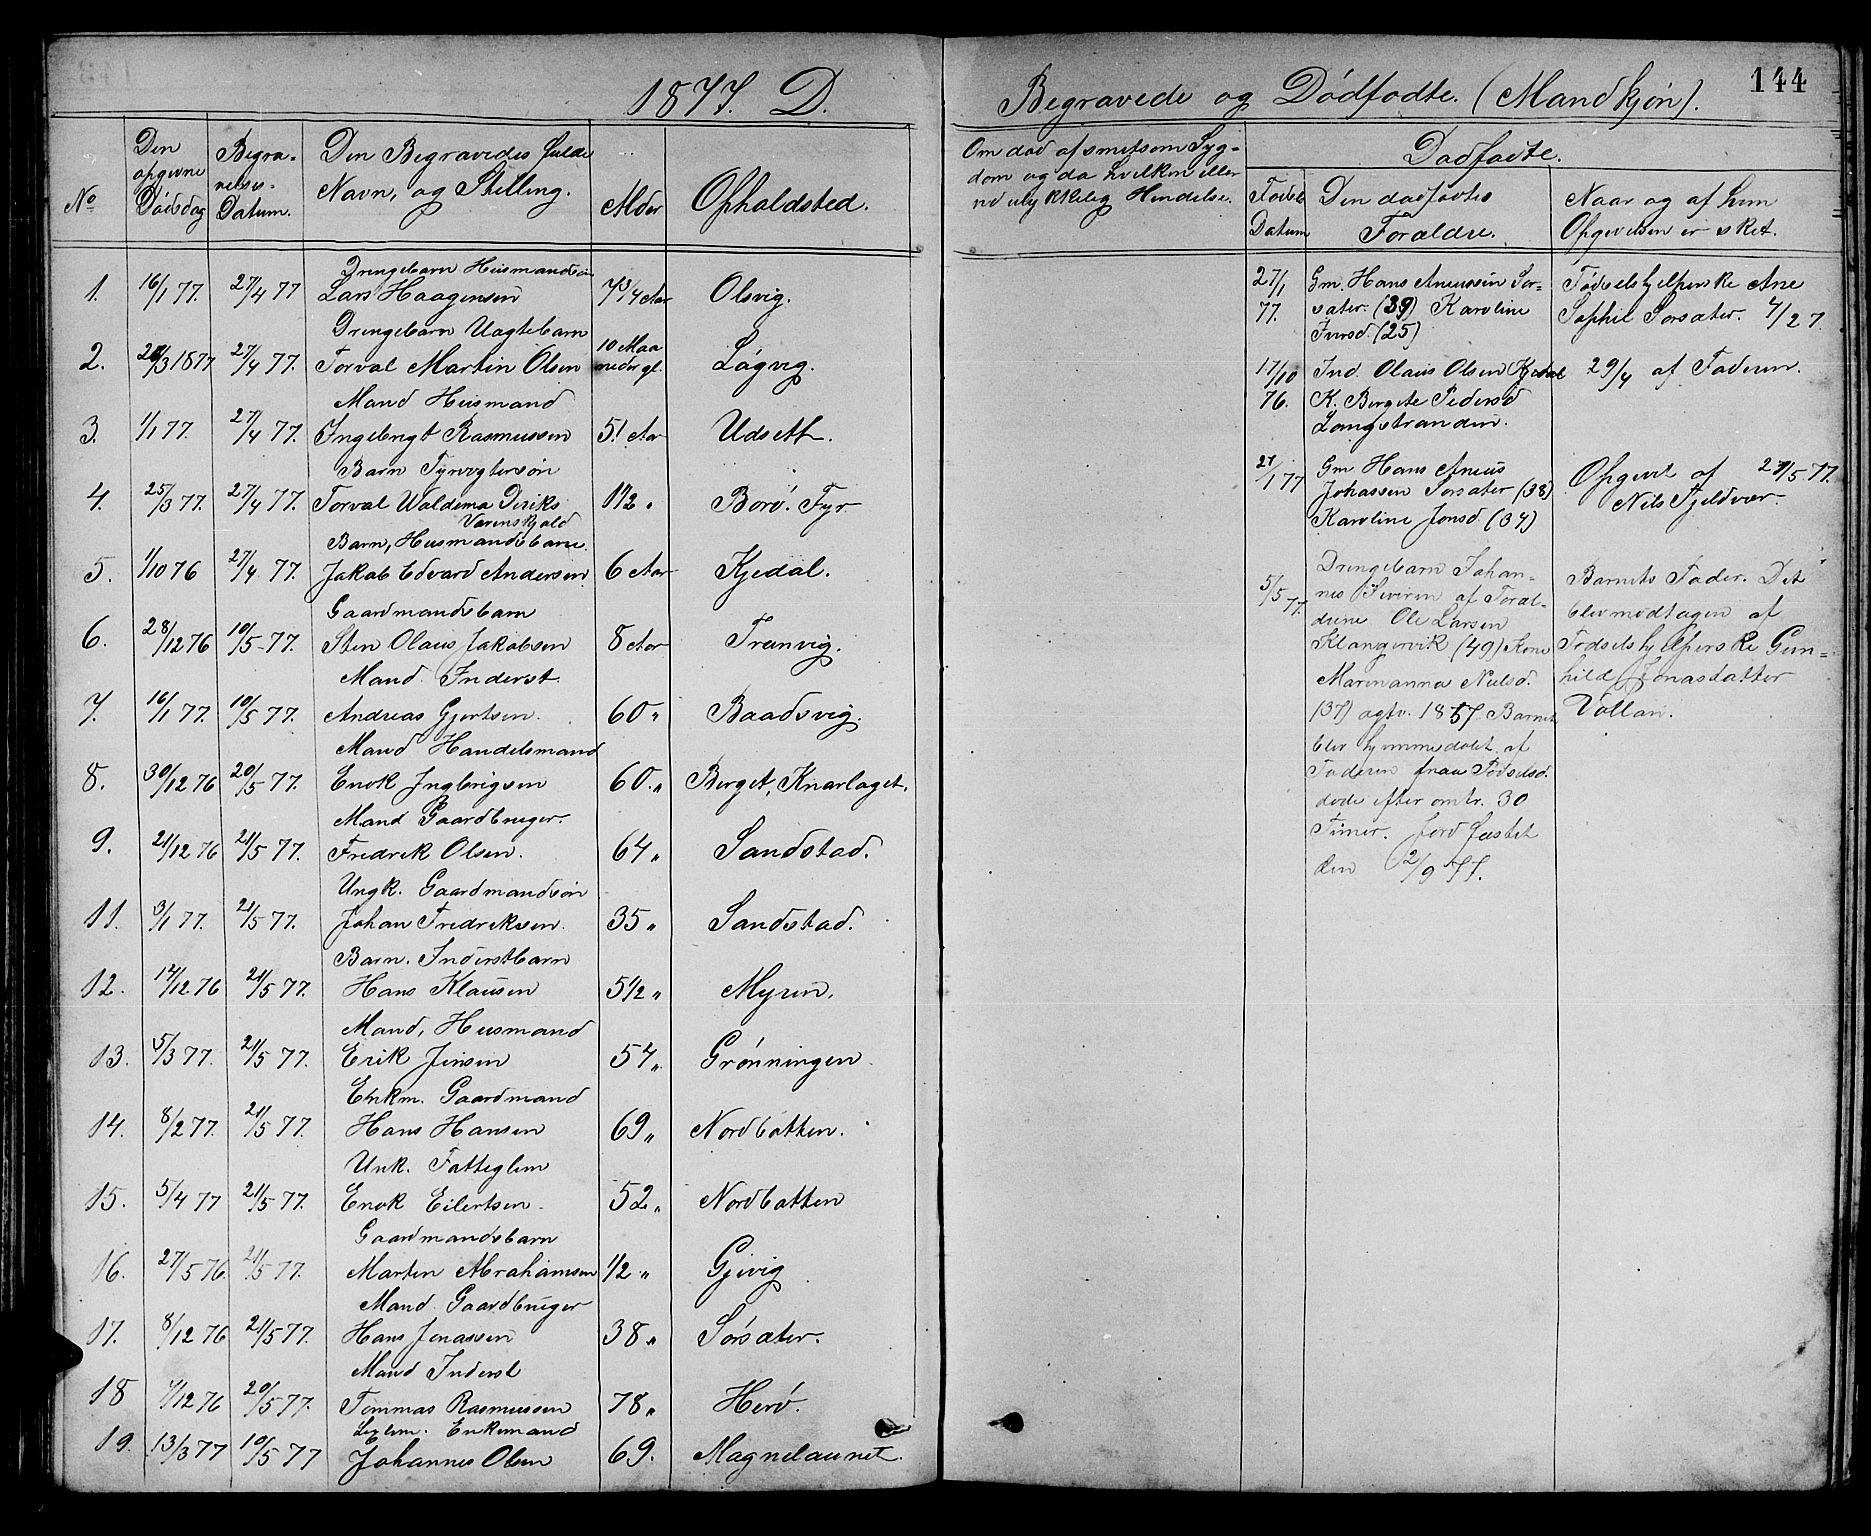 1877. D.
Begravede og Dödfödte. (Mandkjön).
144
No
Den opgivne Dödsdag
Begravelses-Datum.
Den Begravedes fulde Navn, og Stilling.
Alder
Opholdsted.
Om död af smitsom Sygdom og da hvilken eller ved ulykkelig Hendelse.
Dödfödte.
Födsels Datum
Den dödfödtes Foraldre.
Naar og af hvem Opgivelsen er sket.
Drengebarn Husmandsön
1. 16/1 77. 27/4 77 Lars Haagensen 7 3/4 Aar Olsvig.
Drengebarn Uægtebarn
2. 26/3 1877 27/4 77. Torval Martin Olsen 10 Maaneder gl. Lögvig.
Mand Husmand
3. 1/1 77. 27/4 77. Ingebrigt Rasmussen 51 Aar Udseth.
Barn Fyrvogtersön
4. 25/3 77. 27/4 77. Torval Waldema Diriks 1 1/2 " Borö. Fyr
Varenskjold
Barn, Husmandsbarn.
5. 1/10 76 27/4 77. Jakob Edvard Andersen 6 Aar Kjedal.
Gaardmandsbarn
6. 28/12 76 10/5-77. Sten Olaus Jakobsen 8 Aar Tranvig.
Mand. Inderst.
7. 16/1 77. 10/5 77. Andreas Gjertsen. 60 " Baadsvig.
Mand Handelsmand
8. 30/12 76 20/5 77. Enok Ingbrigsen 60. " Berget, Knarlaget.
Mand Gaardbruger.
9. 21/12 76 21/5 77. Fredrik Olsen. 64 " Sandstad.
Ungk. Gaardmandsön
11. 3/1 77. 21/5 77. Johan Fredriksen. 35 " Sandstad.
Barn. Inderstbarn
12. 14/12 76 21/5 77. Hans Klausen 5 1/2 " Myren.
Mand, Husmand
13. 5/3 77. 21/5 77. Erik Jensen 54 " Grönningen
Enkm. Gaardmand
14. 8/2 77. 21/5 77. Hans Hansen 69 " Nordbotten.
Unk. Fattiglem
15. 5/4 77 21/5 77. Enok Eilertsen. 52 " Nordbotten
Gaardmandsbarn
16. 27/5 76. 21/5 77. Marten Abrahamsen 1/2 " Gjevig
Mand. Gaardbruger
17. 8/12 76 21/5 77. Hans Jonassen 38 " Sörsæter.
Mand Inderst
18 4/12 76 20/5 77. Tommas Rasmussen 78 " Herö.
Leglem. Enkemand
19. 13/3 77 10/5 77 Johannes Olsen 69. Magnelaunet.
27/1 77. Gm. Hans Aneussen Sör-
sæter. (39) Karoline
Jursd. (25)
Födselshjelperske Ane
Sophie Sörsæter. 4/27.
17/10 76. Ind. Olaus Olsen Kjedal
K. Bergete Pedersd
Langstranden.
29/4 af Faderen.
27/1 77 Gm Hans Aneus
Johassen Sörsæter (38)
Karoline Jonsd (34)
Opgivet af 27/5 77.
Nils Fjeldvær
5/5 77. Drengebarn Johan-
nes Severin af Foral-
drene Ole Larsen
Klungervik (49) Kone
Marenanna Nielsd.
(37) agtv. 1857. Barnet
blev hjemmedöbt af
Faderen fraa Födselsd.
döde efter omtr. 30
Timer. Jordfæstet
den 2/9 77.
Barnets Fader. Det
blev modtagen af
Födselshjelperske Gun-
hild Jonasdatter
Vollan.